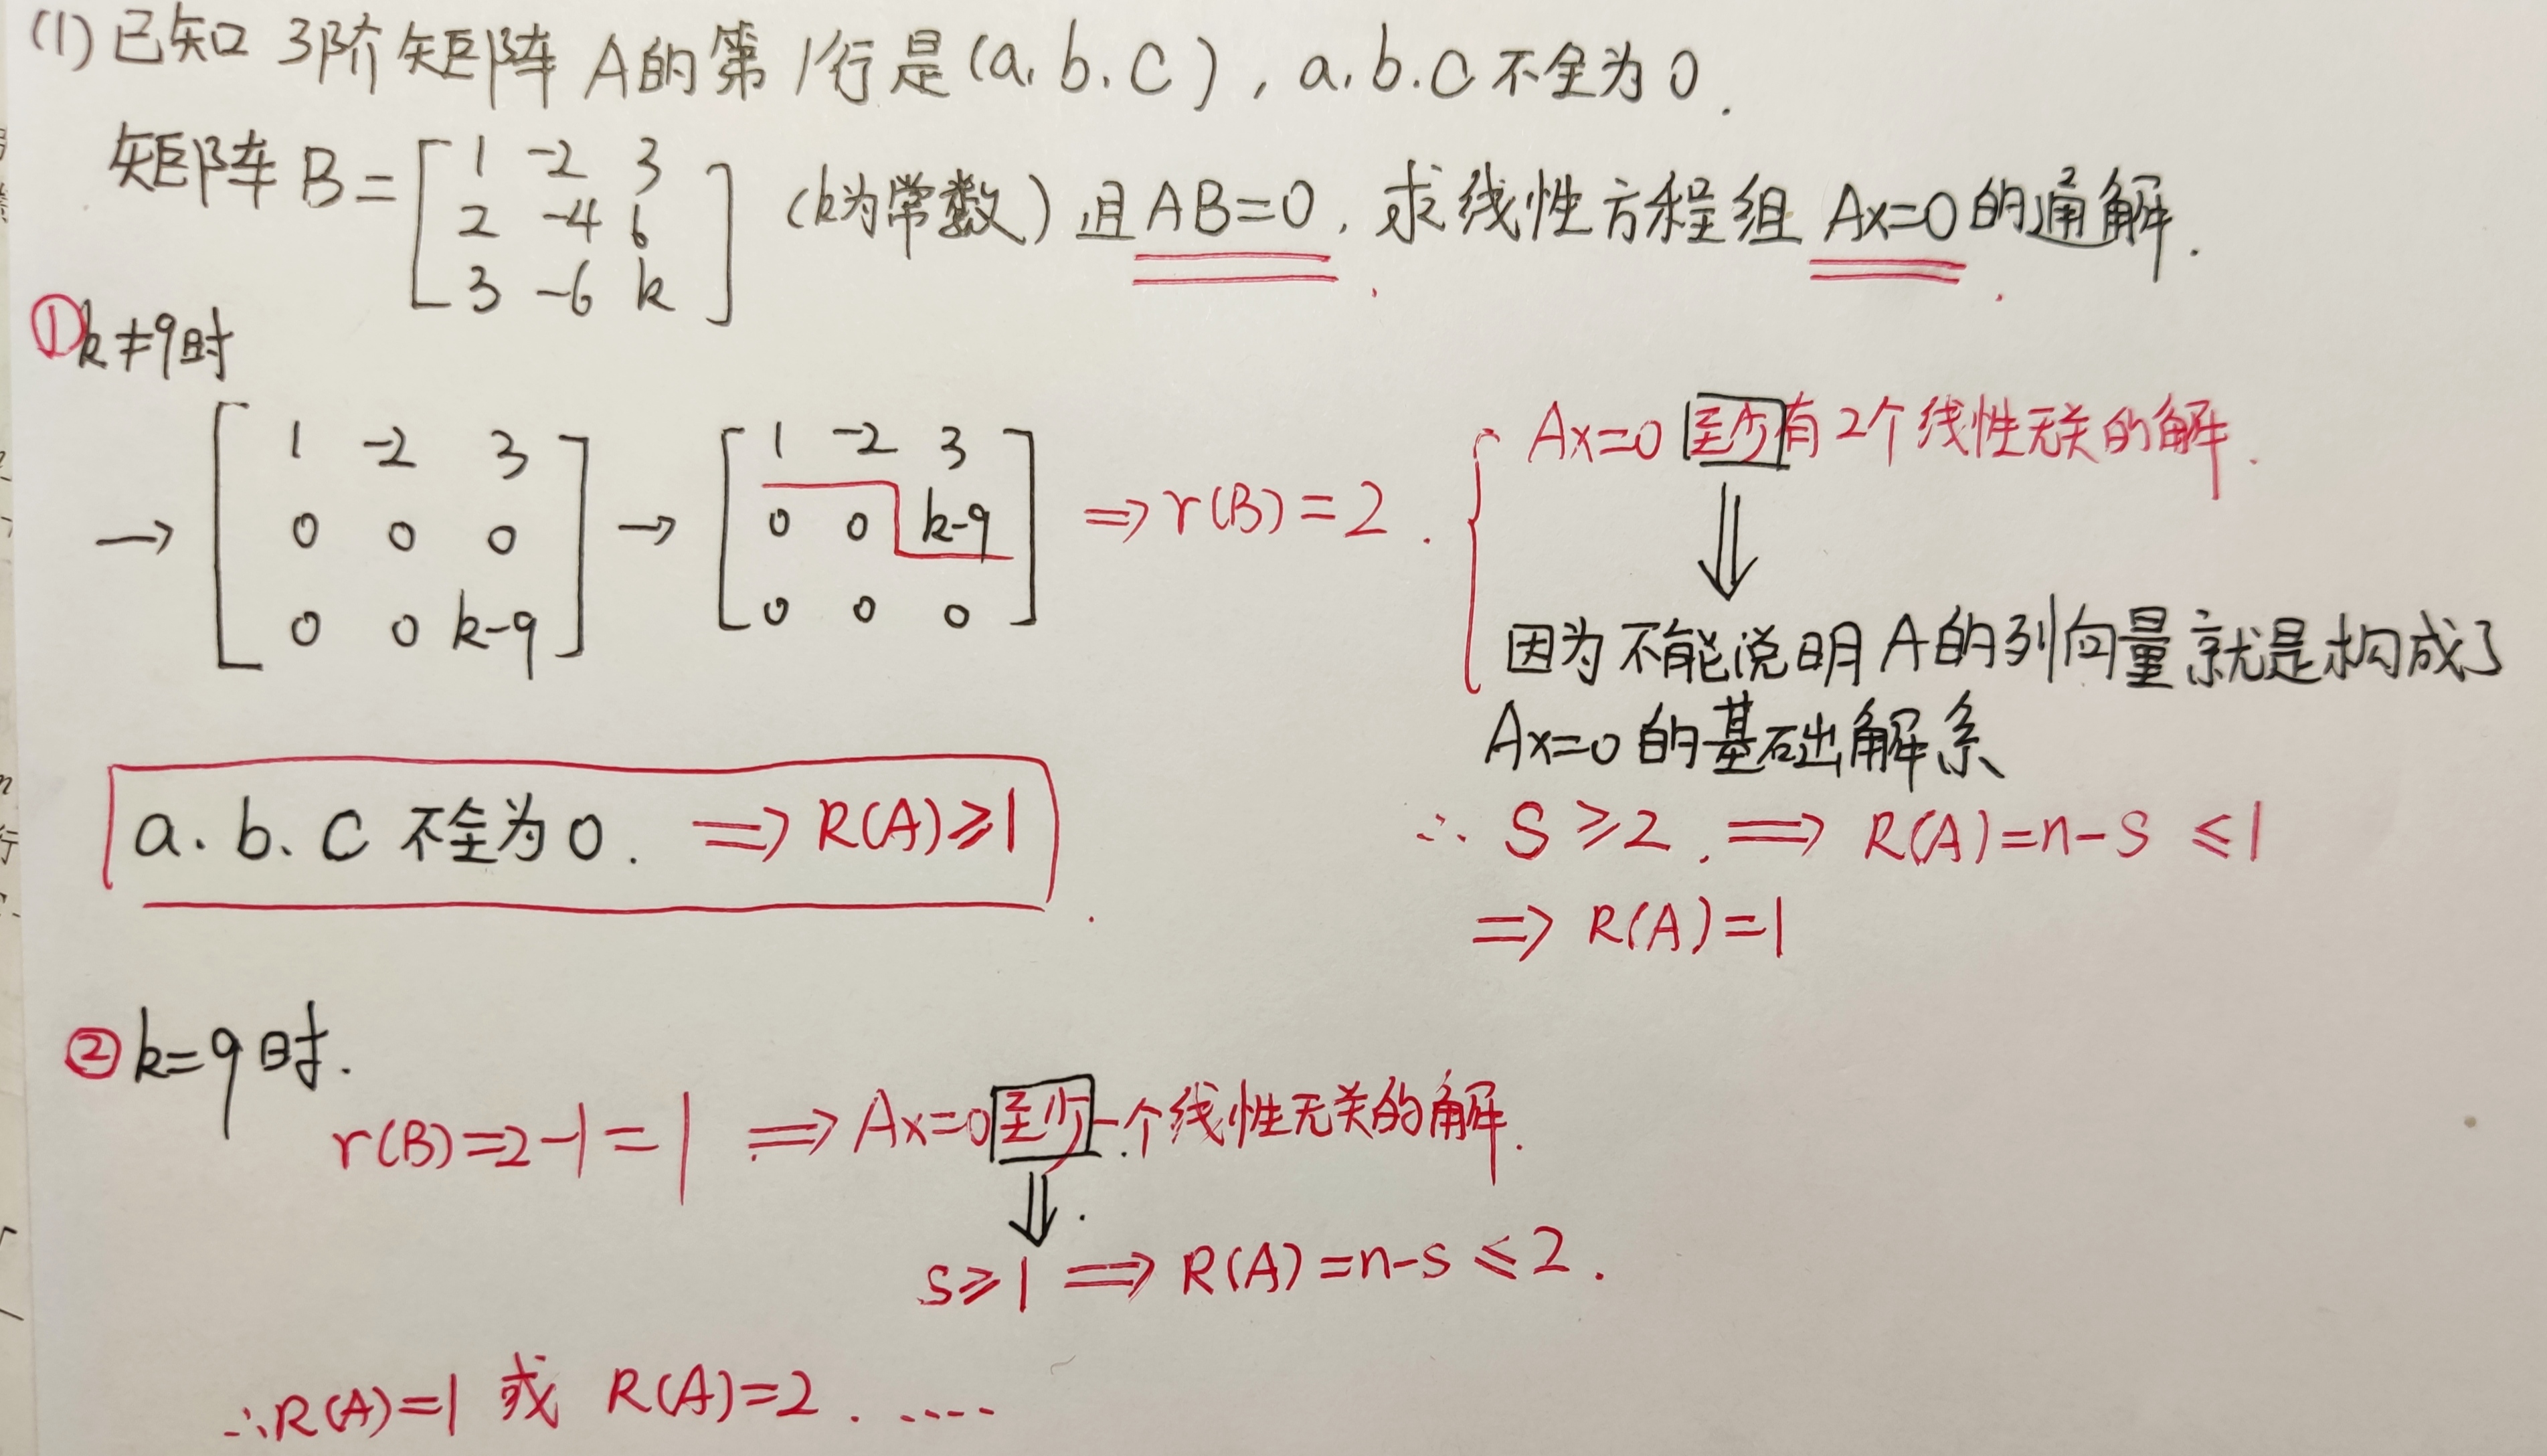 (1) 已知 3阶矩阵 A的第1行是(a, b, c), a, b, c不全为0.
矩阵 B = [ 1 -2 3
2 -4 6
3 -6 k ] (k为常数) 且AB=0, 求线性方程组 Ax=0的通解.
① k≠9时
→ [ 1 -2 3
0 0 0
0 0 k-9 ] → [ 1 -2 3
0 0 k-9
0 0 0 ] ⇒ r(B)=2.
{ Ax=0 至少有2个线性无关的解.
⇓
因为不能说明A的列向量就是构成了
Ax=0的基础解系
a. b. c 不全为0. ⇒ R(A)≥1
∴ S≥2. ⇒ R(A)=n-S ≤1
⇒ R(A)=1
② k=9时.
r(B)=2-1=1 ⇒ Ax=0至少一个线性无关的解.
⇓.
S≥1 ⇒ R(A)=n-s ≤2.
∴R(A)=1 或 R(A)=2. ....